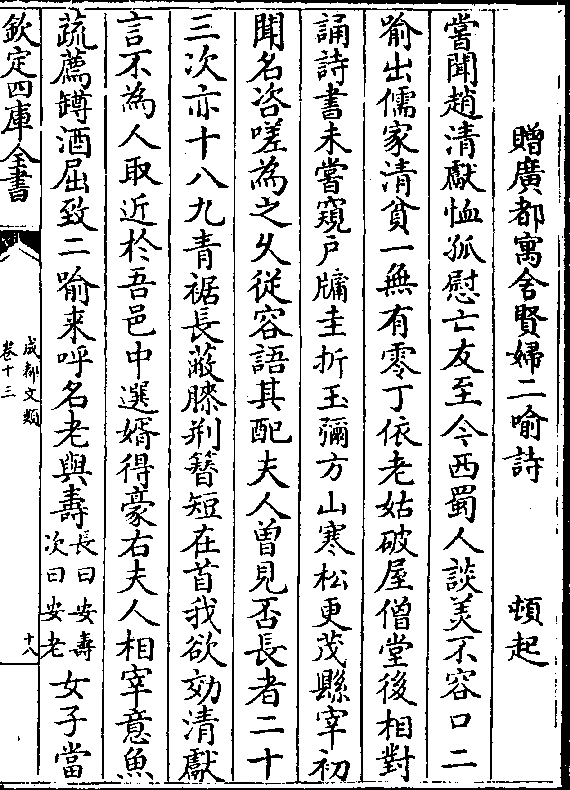 贈廣都寓舍賢婦二喻詩　頓起
嘗聞趙清獻恤孤慰亡友至今西蜀人談美不容口二
喻出儒家清貧一無有零丁依老姑破屋僧堂後相對
誦詩書未嘗窺戶牖圭折玉彌方山寒松更茂縣宰初
聞名咨嗟為之久從容語其配夫人曾見否長者二十
三次亦十八九青裾長蔽膝荆簪短在首我欲効清獻
言不為人取近於吾邑中選婿得豪右夫人相宰意魚
蔬薦罇酒屈致二喻来呼名老與壽長曰安壽次曰安老女子當
欽定四庫全書
成都文類
卷十三
十八